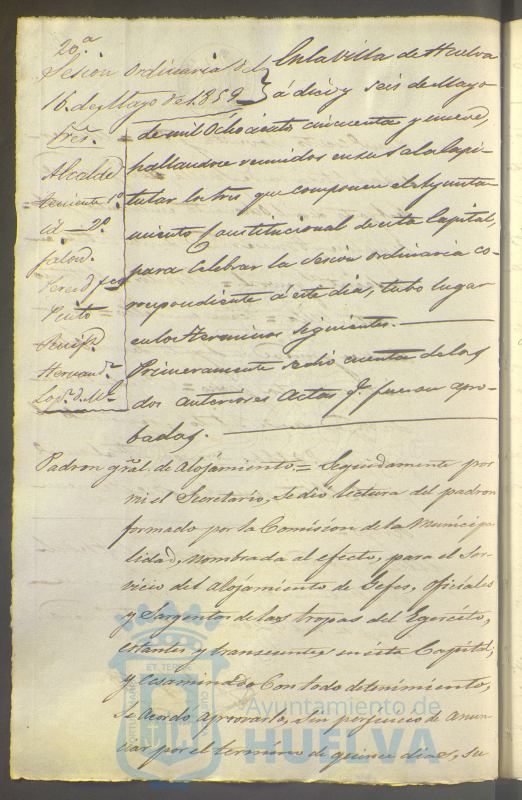 20.ª
Sesion ordinaria del
16. de Mayo de 1.859
Sres.
Alcalde
teniente 1º
id — 2º
Pinto
Hernand.z
En la villa de Huelva
á diez y seis de Mayo
de mil Ochociento cincuenta y nueve,
hallandose reunidos en su Sala Capi-
tular los Sres. que componen el Ayunta-
miento Constitucional de esta Capital,
para celebrar la sesion ordinaria co-
rrespondiente á este dia, tubo lugar
en los terminos siguientes.
Primeramente se dió cuenta de las
dos anteriores Actas q. fueron apro-
badas.
Padron gral. de Alojamiento = Seguidamente por
mi el Secretario, se dió lectura del padron
formado por la Comision de la Municipa
lidad, nombrada al efecto, para el ser-
vicio del Alojamiento de Gefes, oficiales
y Sargentos de las tropas del Egercito,
estantes y transeuntes en esta Capital;
y ecsaminado con todo detenimiento,
se acordó aprovarlo, sin perjuicio de anun-
ciar por el termino de quince dias, su
Ayuntamiento de
HUELVA